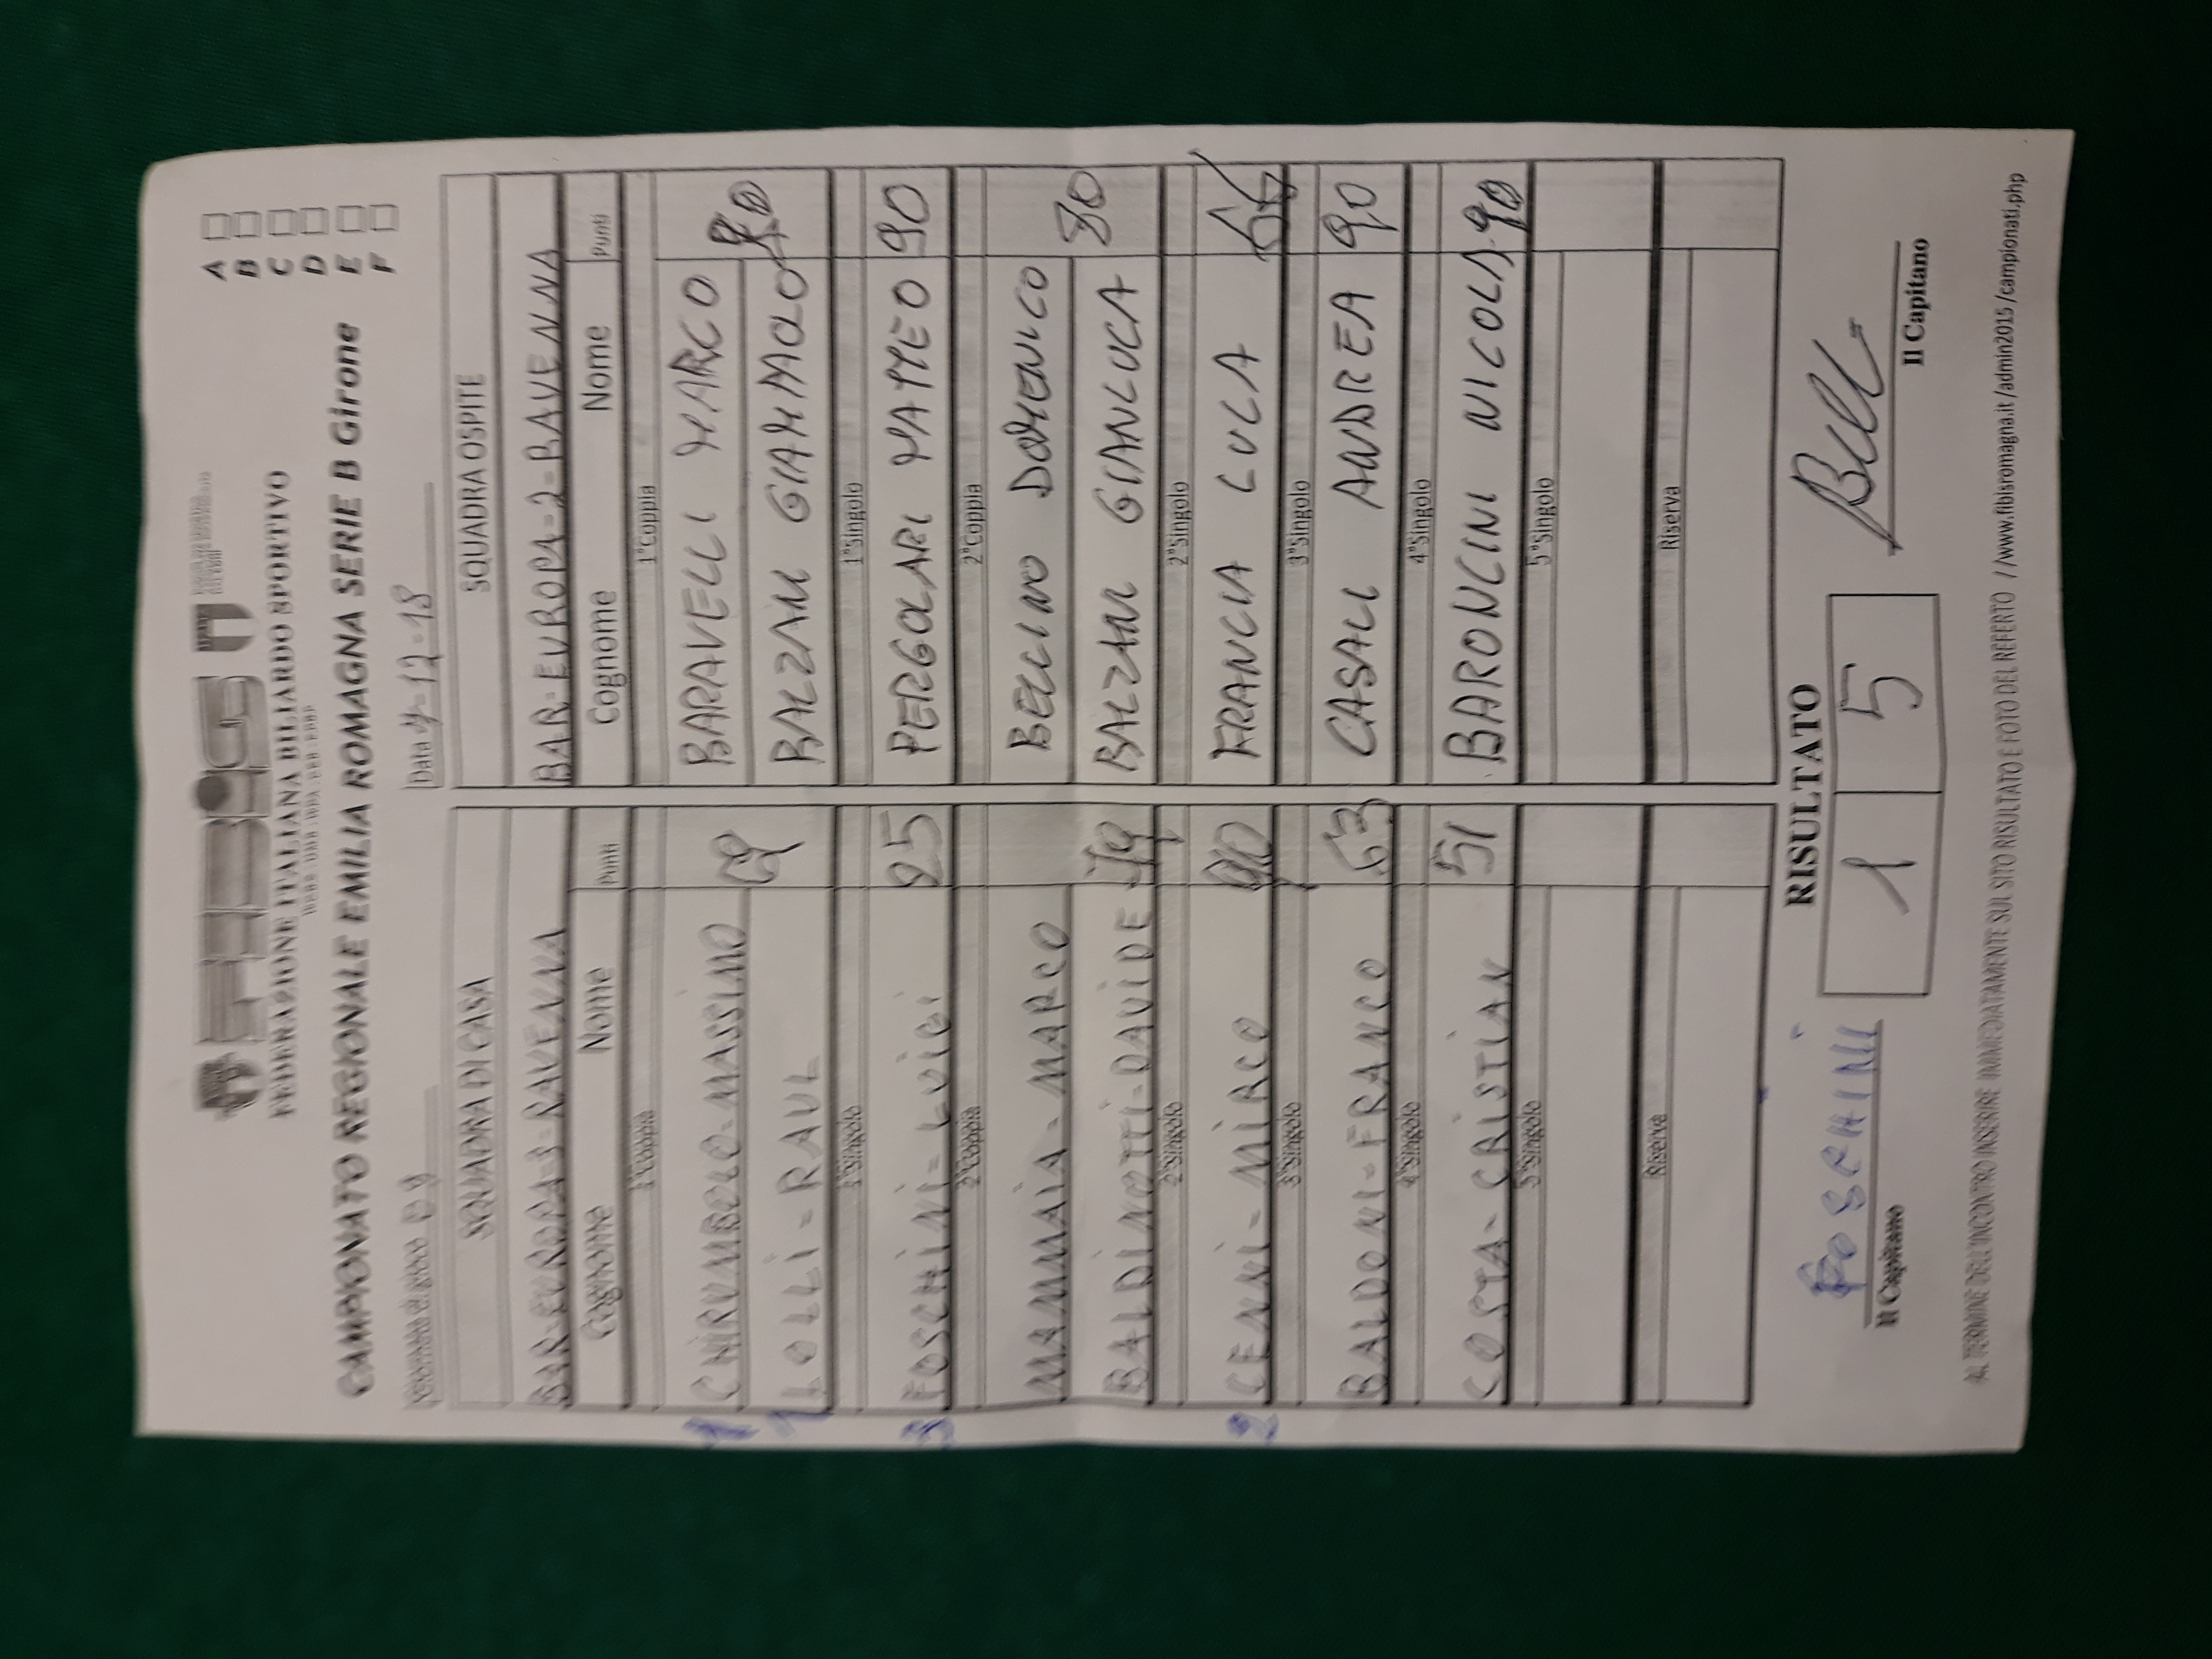 FIBiS
FEDERAZIONE ITALIANA BILIARDO SPORTIVO
CAMPIONATO REGIONALE EMILIA ROMAGNA SERIE B Girone
A
B
C
D
E
F
Data 4=12=18
SQUADRA DI CASA
BAR-EUROPA-3-RAVENNA
Cognome Nome Punti
1°Coppia
CHIRUMBOLO-MASSIMO
LOLLI=RAUL
1°Singolo
FOSCHINI=LUIGI 25
2°Coppia
MAMMAIA=MARCO
BALDINOTTI=DAVIDE
2°Singolo
CENNI=MIRCO 90
3°Singolo
BALDONI=FRANCO 63
4°Singolo
COSTA-CRISTIAN 51
5°Singolo
Riserva
SQUADRA OSPITE
BAR-EUROPA=2=RAVENNA
Cognome Nome Punti
1°Coppia
BARAVELLI MARCO
BALZANI GIAMPAOLO
90
1°Singolo
PERGOLARI MATTEO 90
2°Coppia
BELLINO DOMENICO
BALZANI GIANLUCA
80
2°Singolo
FRANCIA LUCA
3°Singolo
CASALI ANDREA 90
4°Singolo
BARONCINI NICOLA 90
5°Singolo
Riserva
RISULTATO
1 5
FOSCHINI
Il Capitano
Il Capitano
AL TERMINE DELL'INCONTRO INSERIRE IMMEDIATAMENTE SUL SITO RISULTATO E FOTO DEL REFERTO //www.fibisromagna.it /admin2015 /campionati.php